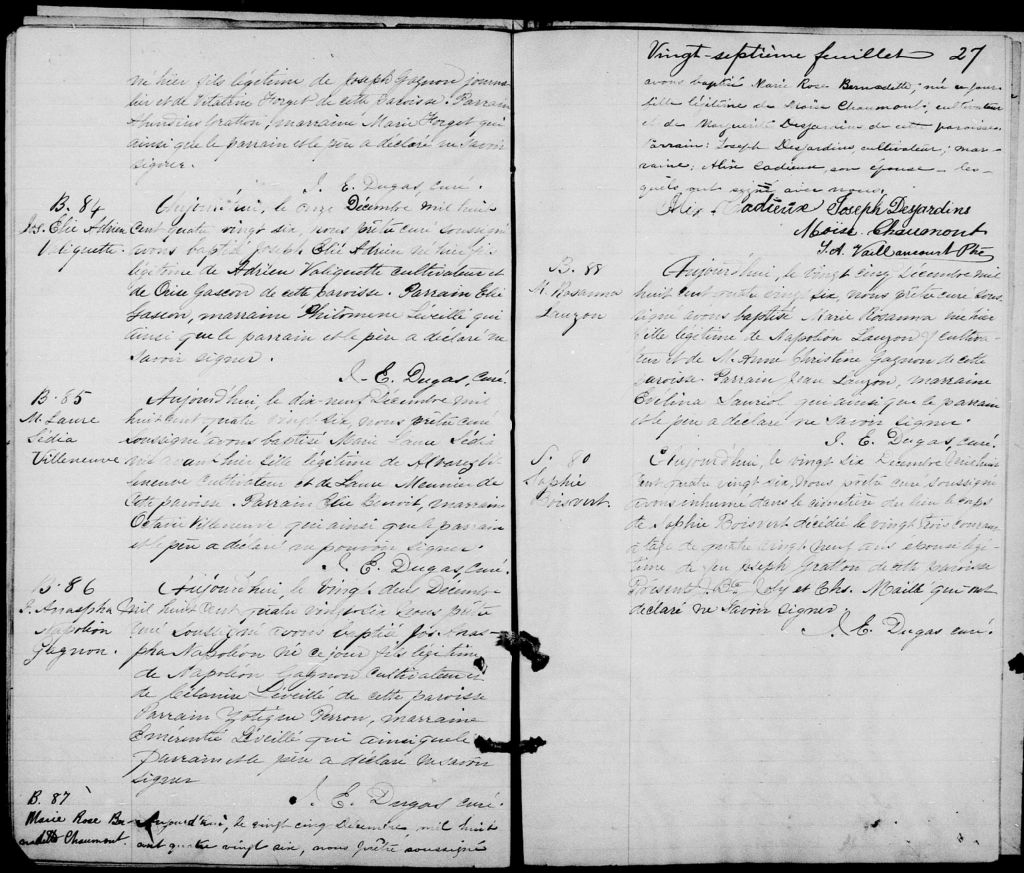 né hier fils légitime de Joseph Gagnon journa-
lier et de Vitaline Forget de cette paroisse. Parrain
Gration, marraine Marie Forget qui
ainsi que le parrain et le père a déclaré ne savoir
signer.
J. E. Dugas, curé.
B. 84
Jos. Elie Adrien
Valiquette
Aujourd'hui, le onze Décembre mil huit
cent quatre vingt six, nous prêtre curé soussigné
avons baptisé Joseph Elié Adrien né hier fils
légitime de Adrien Valiquette cultivateur et
de Orise Gascon de cette paroisse. Parrain Elié
Gascon, marraine Philomène Léveillé qui
ainsi que le parrain et le père a déclaré ne
savoir signer.
J. E. Dugas, curé.
B. 85
M. Laure
Lédia
Villeneuve
Aujourd'hui, le dix-neuf Décembre mil
huit cent quatre vingt six, nous prêtre curé
soussigné avons baptisé Marie Laure Lédia
née avant hier fille légitime de Alvarez Vil-
leneuve cultivateur et de Laure Meunier de
cette paroisse. Parrain Elie Benoit, marraine
Octavie Villeneuve qui ainsi que le parrain
et le père a déclaré ne pouvoir signer.
J. E. Dugas, curé.
B. 86
J. Anaspha
Napoléon
Gagnon.
Aujourd'hui, le vingt deux Décembre
mil huit cent quatre vingt six nous prêtre
curé soussigné avons baptisé Jos. Anas-
pha Napoléon né ce jour fils légitime
de Napoléon Gagnon cultivateur et
de Célanire Léveillé de cette paroisse
Parrain Zotique Perron, marraine
Emérentie Léveillé qui ainsi que le
parrain et le père a déclaré ne savoir
signer
J. E. Dugas curé.
B. 87
Marie Rose Ber-
nadette Chaumont.
Aujourd'hui, le vingt cinq Décembre mil huit
cent quatre vingt six, nous Prêtre soussigné
Vingt-septième feuillet 27
avons baptisé Marie Rose Bernadette; née ce jour
fille légitime de Moïse Chaumont; cultivateur
et de Marguerite Desjardins de cette paroisse.
Parrain: Joseph Desjardins, cultivateur; mar-
raine; Alix Cadieux, son épouse - les-
quels ont signé avec nous.
Alix Cadieux Joseph Desjardins
Moïse Chaumont
J. A. Vaillancourt Ptre
B. 88
M. Rosanna
Lauzon
Aujourd'hui, le vingt cinq Décembre mil
huit cent quatre vingt six, nous prêtre curé sous-
signé avons baptisé Marie Rosanna née hier
fille légitime de Napoléon Lauzon cultiva-
teur et de M. Anne Christine Gagnon de cette
paroisse. Parrain Jean Lauzon, marraine
Evelina Lauriol qui ainsi que le parrain
et le père a déclaré ne savoir signer.
J. E. Dugas, curé.
S. 80
Sophie
Boisvert.
Aujourd'hui, le vingt six Décembre mil huit
cent quatre vingt six, nous prêtre curé soussigné
avons inhumé dans le cimetière du lieu le corps
de Sophie Boisvert décédée le vingt trois courant
à l'age de quatre vingt neuf ans épouse légi-
time de feu Joseph Gratton de cette paroisse
Présents Bte Joly et Chs. Maillé qui ont
déclaré ne savoir signer
J. E. Dugas curé.